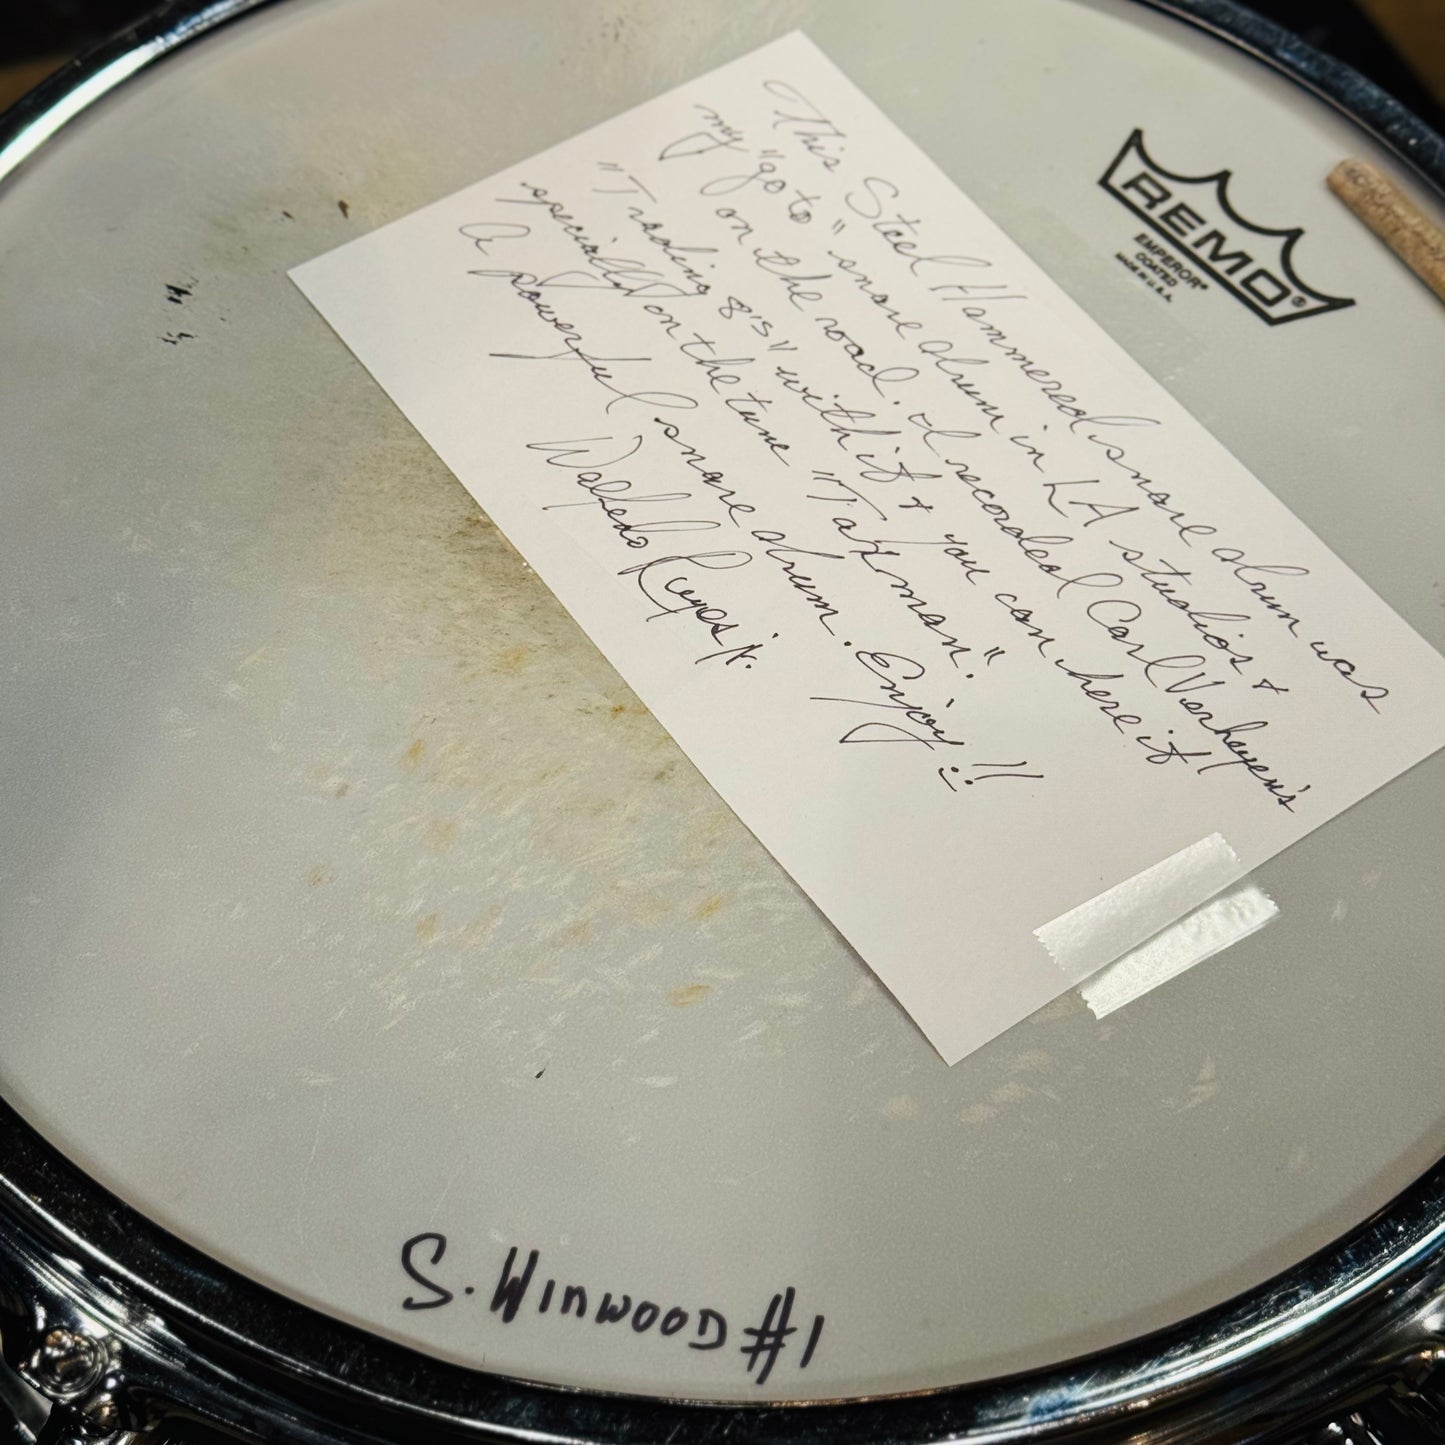 This Steel Hammered snare drum was
my "go to" snare drum in LA studios +
on the road. I recorded Carl Verheyen's
"Trading 8's" with it + you can here it
specially on the tune "Taxman."
A powerful snare drum. Enjoy!!
Walfredo Reyes Jr.
REMO®
EMPEROR®
COATED
MADE IN U.S.A.
S. WINWOOD #1